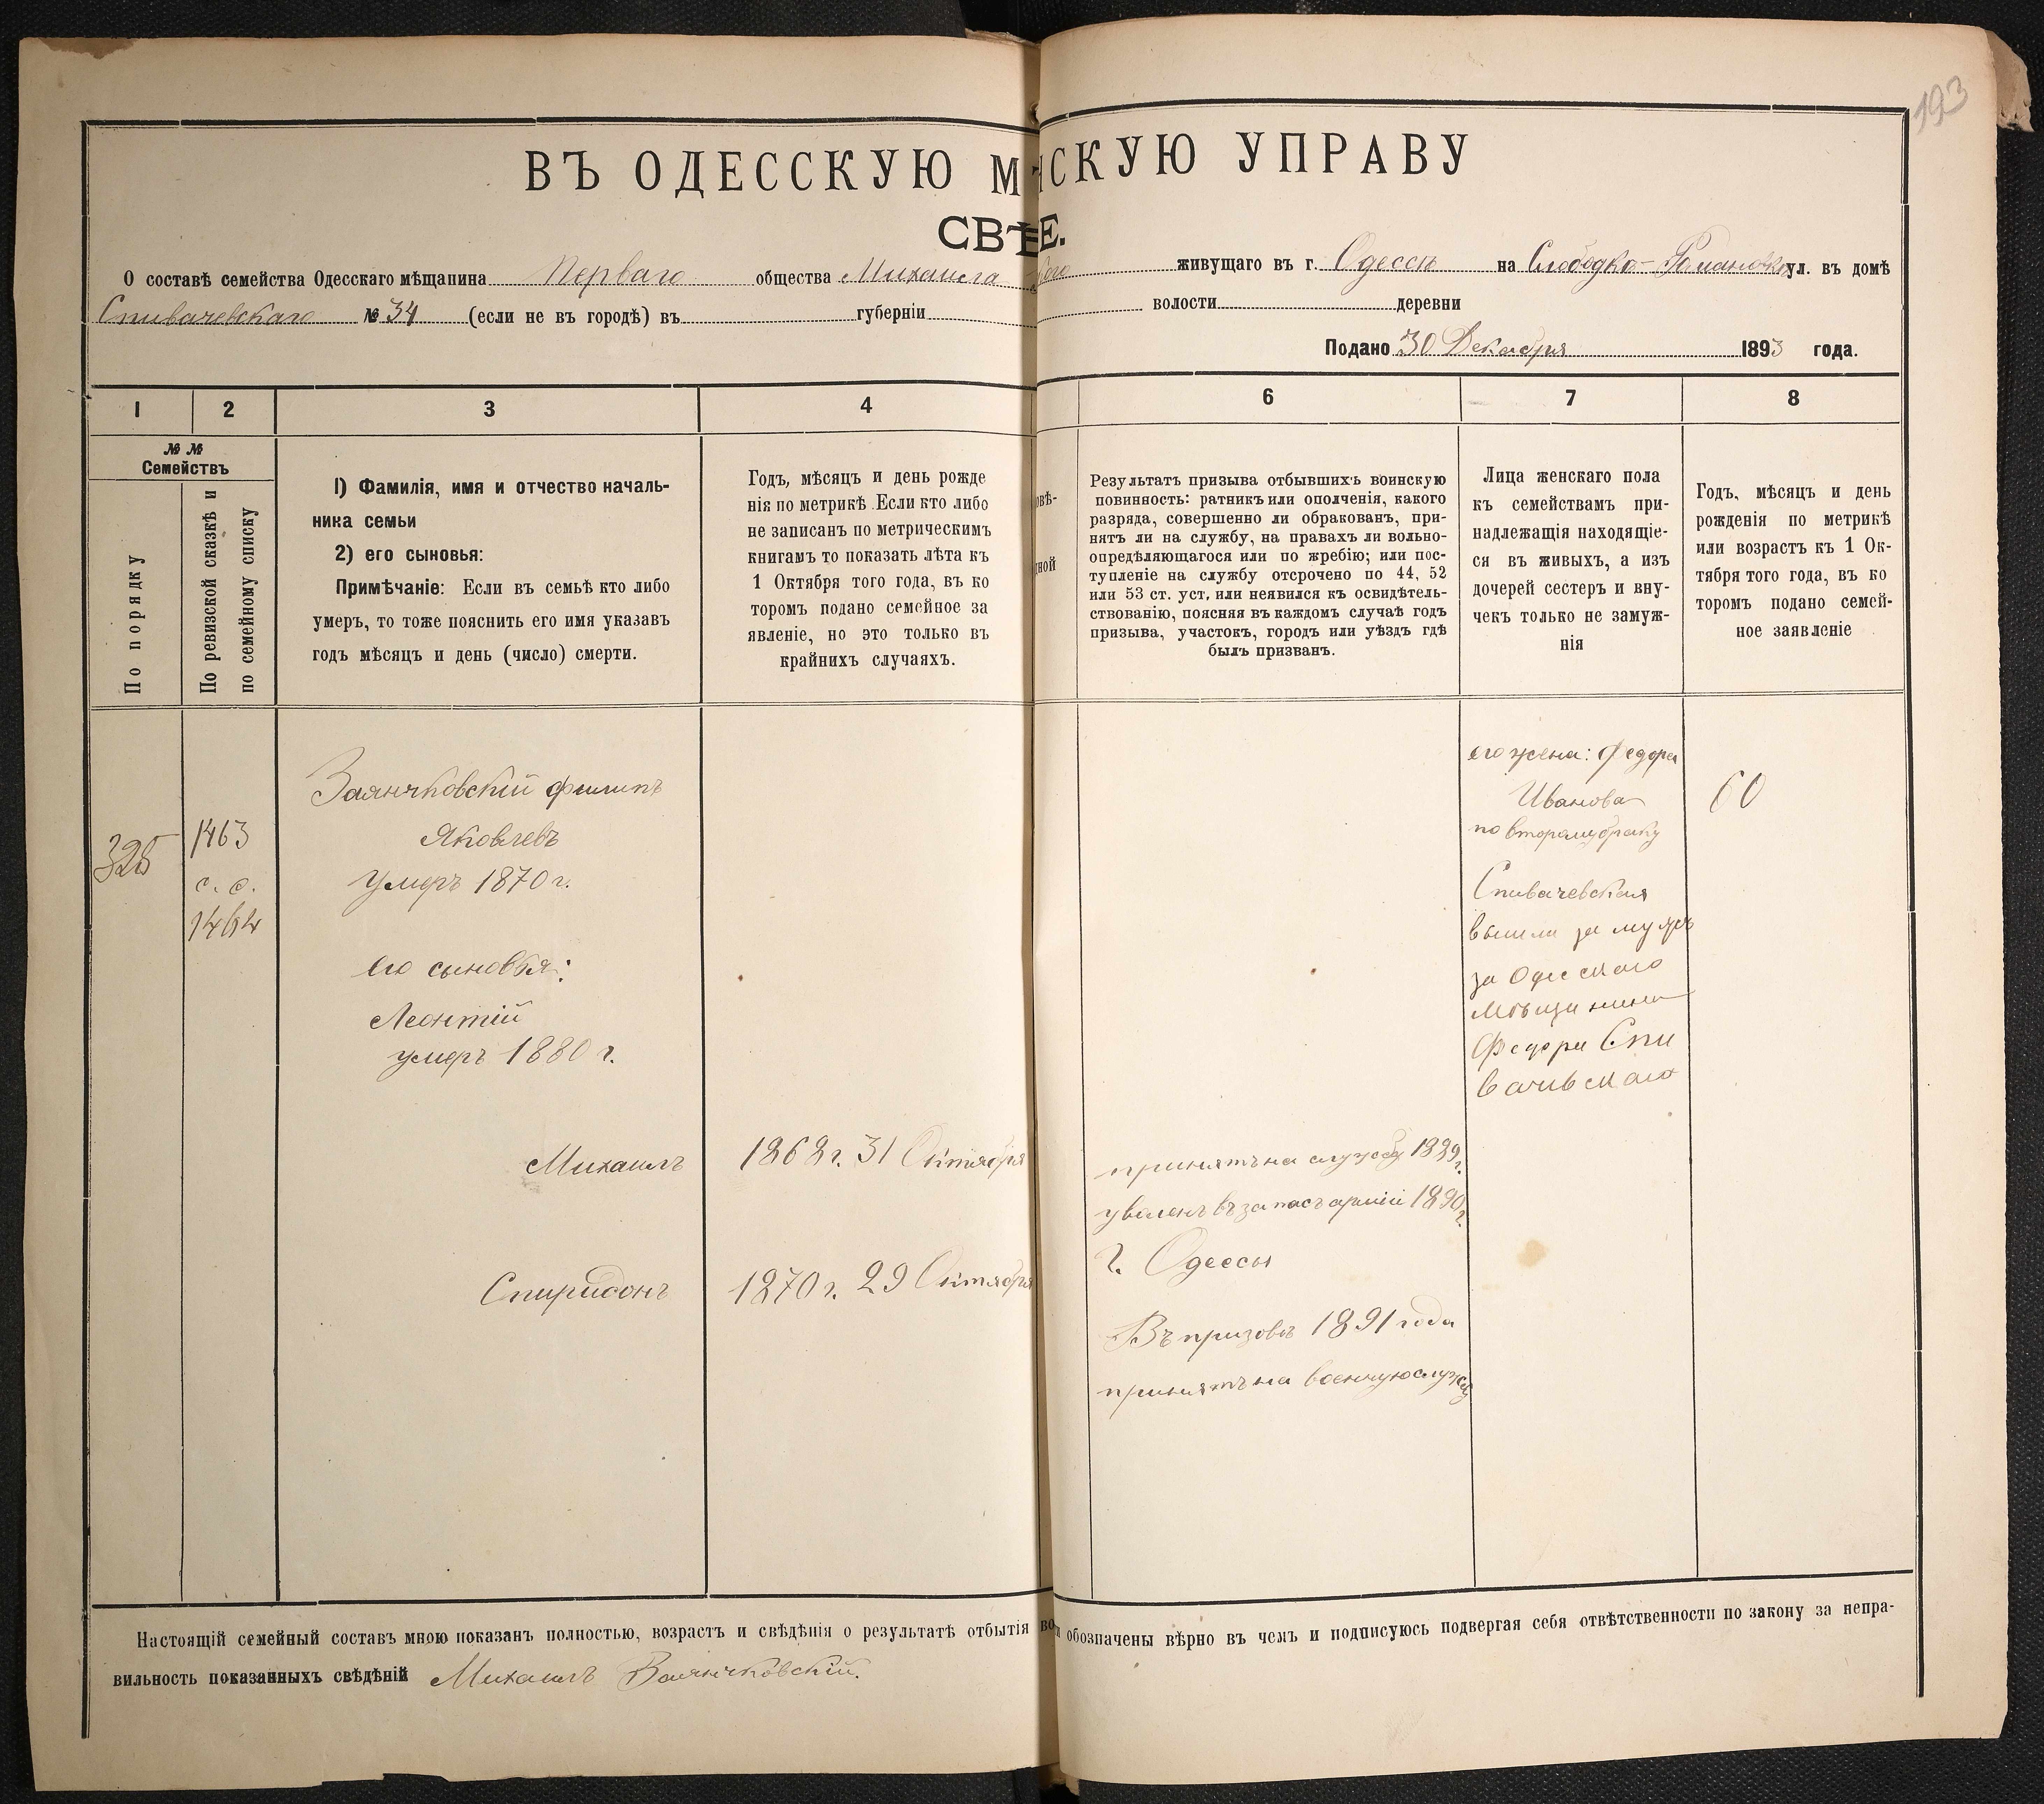 193
ВЪ ОДЕССКУЮ М СКУЮ УПРАВУ
СВѢ Е.
О составѣ семейства Одесскаго мѣщанина Перваго общества Михаила живущаго въ г. Одессѣ на Слободка-Романовка ул. въ домѣ
Спивачевскаго № 34 (если не въ городѣ) въ губерніи волости деревни
Подано 30 Декабря 1893 года.
1 2 3 4 6 7 8
№ №
Семействъ
По порядку
По ревизской сказкѣ и
по семейному списку
1) Фамилія, имя и отчество началь-
ника семьи
2) его сыновья:
Примѣчаніе: Если въ семьѣ кто либо
умеръ, то тоже пояснить его имя указавъ
годъ мѣсяцъ и день (число) смерти.
Годъ, мѣсяцъ и день рожде
нія по метрикѣ. Если кто либо
не записанъ по метрическимъ
книгамъ то показать лѣта къ
1 Октября того года, въ ко
торомъ подано семейное за
явленіе, но это только въ
крайнихъ случаяхъ.
овѣ-
тной
Результатъ призыва отбывшихъ воинскую
повинность: ратникъ или ополченія, какого
разряда, совершенно ли обракованъ, при-
нятъ ли на службу, на правахъ ли вольно-
опредѣляющагося или по жребію; или пос-
тупленіе на службу отсрочено по 44, 52
или 53 ст. уст, или неявился къ освидѣтель-
ствованію, поясняя въ каждомъ случаѣ годъ
призыва, участокъ, городъ или уѣздъ гдѣ
былъ призванъ.
Лица женскаго пола
къ семействамъ при-
надлежащія находящіе-
ся въ живыхъ, а изъ
дочерей сестеръ и вну-
чекъ только не замуж-
нія
Годъ, мѣсяцъ и день
рожденія по метрикѣ
или возрастъ къ 1 Ок-
тября того года, въ ко
торомъ подано семей-
ное заявленіе
325
1463
с. с.
1464
Заянчковскій Филипъ
Яковлевъ
умеръ 1870 г.
его сыновья:
Леонтій
умеръ 1880 г.
Михаилъ
1868 г. 31 Октября
Спиридонъ
1870 г. 29 Октября
принятъ на службу 1889 г.
уволенъ въ запасъ арміи 1890 г.
г. Одессы
Въ призовъ 1891 года
принятъ на военную службу
его жена: Федора
Иванова
по второму браку
Спивачевская
вышла за мужъ
за Одесскаго
мѣщанина
Федора Спи
вачевскаго
60
Настоящій семейный составъ мною показанъ полностью, возрастъ и свѣдѣнія о результатѣ отбытія во обозначены вѣрно въ чемъ и подписуюсь подвергая себя отвѣтственности по закону за непра-
вильность показанныхъ свѣдѣній Михаилъ Заянчковскій.